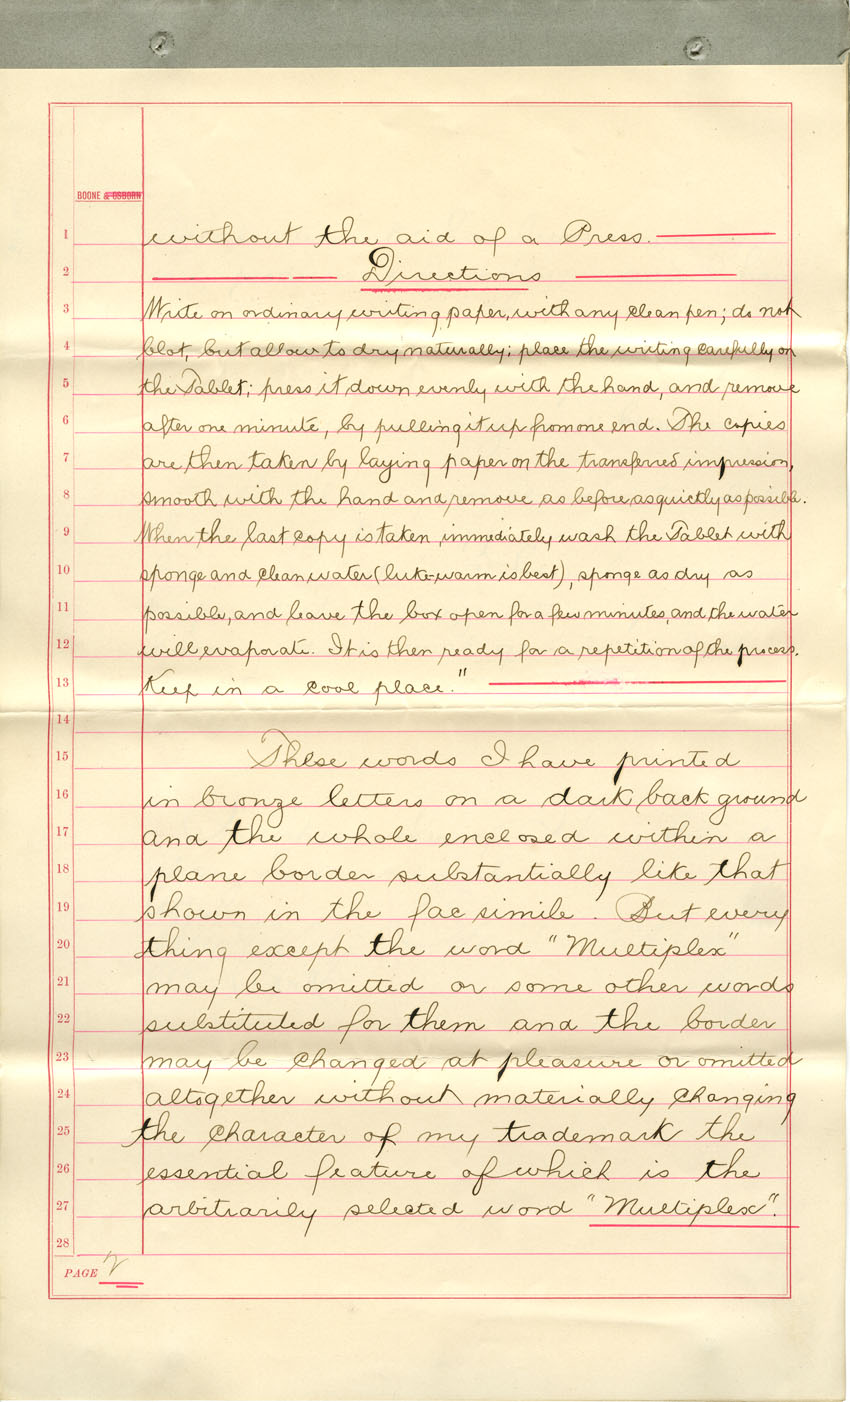 BOONE & OSBORN
1 without the aid of a Press.
2 Directions
3 Write on ordinary writing paper, with any clean pen; do not
4 blot, but allow to dry naturally; place the writing carefully on
5 the Tablet; press it down evenly with the hand, and remove
6 after one minute, by pulling it up from one end. The copies
7 are then taken by laying paper on the transferred impression,
8 smooth with the hand and remove as before, as quickly as possible.
9 When the last copy is taken, immediately wash the Tablet with
10 sponge and clean water (luke-warm is best), sponge as dry as
11 possible, and leave the box open for a few minutes, and the water
12 will evaporate. It is then ready for a repetition of the process.
13 Keep in a cool place."
14
15 These words I have printed
16 in bronze letters on a dark back ground
17 and the whole enclosed within a
18 plane border substantially like that
19 shown in the fac simile. But every
20 thing except the word "Multiplex"
21 may be omitted or some other words
22 substituted for them and the border
23 may be changed at pleasure or omitted
24 altogether without materially changing
25 the character of my trademark the
26 essential feature of which is the
27 arbitrarily selected word "Multiplex".
28
PAGE 2